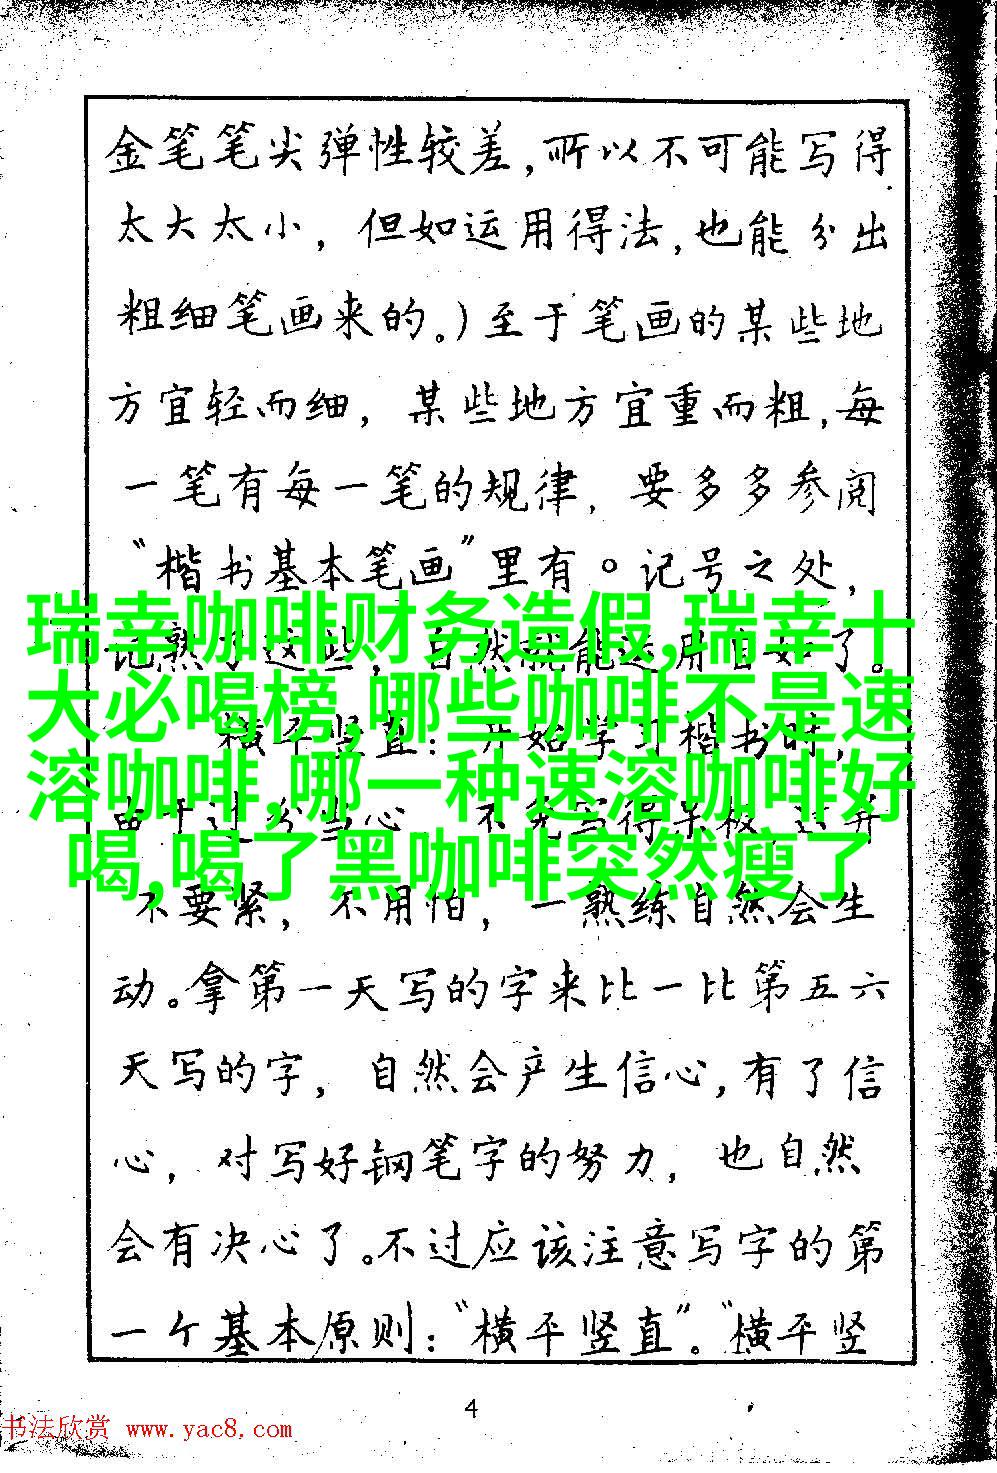 金笔笔尖弹性较差,所以不可能写得
太大太小，但如运用得法,也能分出
粗细笔画来的。)至于笔画的某些地
方宜轻而细，某些地方宜重而粗,每
一笔有每一笔的规律，要多多参阅
“楷书基本笔画”里有。记号之处，
记熟了这些，自然就能运用自如了。
瑞幸咖啡财务造假,瑞幸十
大必喝榜,哪些咖啡不是速
溶咖啡,哪一种速溶咖啡好
喝,喝了黑咖啡突然瘦了
横平竖直：开始学习楷书时，
由于过分当心，不免写得呆板,这并
不要紧，不用怕，一熟练自然会生
动。拿第一天写的字来比一比第五六
天写的字，自然会产生信心,有了信
心，对写好钢笔字的努力，也自然
会有决心了。不过应该注意写字的第
一个基本原则：“横平竖直”。“横平竖
4
书法欣赏 www.yac8.com